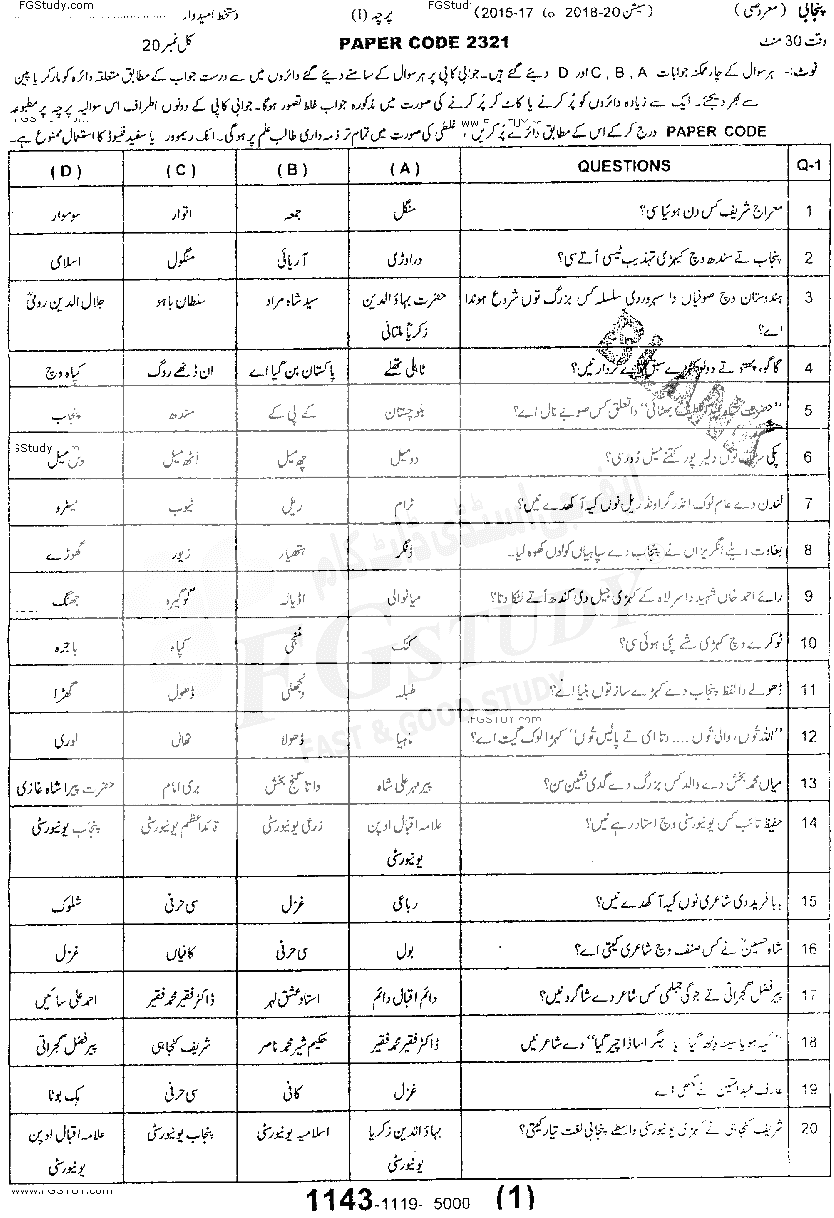 FGStudy.com
FGStudy.com
پنجابی (معروضی) (سیشن 2015-17 to 2018-20) پرچہ (I) دستخط امیدوار
وقت 30 منٹ PAPER CODE 2321 کل نمبر 20
نوٹ:- ہر سوال کے چار ممکنہ جوابات A , B , C اور D دیئے گئے ہیں۔ جوابی کاپی پر ہر سوال کے سامنے دیئے گئے دائروں میں سے درست جواب کے مطابق متعلقہ دائرہ کو مارکر یا پین
سے بھر دیجئے۔ ایک سے زیادہ دائروں کو پُر کرنے یا کاٹ کر پُر کرنے کی صورت میں مذکورہ جواب غلط تصور ہوگا۔ جوابی کاپی کے دونوں اطراف اس سوالیہ پرچہ پر مطبوعہ
PAPER CODE درج کر کے اس کے مطابق دائرے پُر کریں، غلطی کی صورت میں تمام تر ذمہ داری طالب علم پر ہوگی۔ انک ریموور یا سفید فلیوڈ کا استعمال ممنوع ہے۔
Q-1 QUESTIONS (A) (B) (C) (D)
1 معراج شریف کس دن ہوئیا سی؟ منگل جمعہ اتوار سوموار
2 پنجاب تے سندھ وچ کیہڑی تہذیب ٹیسی اُتے سی؟ دراوڑی آریائی منگول اسلامی
3 ہندوستان وچ صوفیاں دا سہروردی سلسلہ کس بزرگ توں شروع ہوندا اے؟ حضرت بہاؤ الدین زکریا ملتانی سید شاہ مراد سلطان باہو جلال الدین رومیؒ
4 گاگو، پھتو تے دولو کیہڑے سبق دے کردار نیں؟ ٹاہلی تھلے پاکستان بن گیا اے ان ڈٹھے روگ کپاہ وچ
5 "حضرت شاہ عبداللطیف بھٹائی" دا تعلق کس صوبے نال اے؟ بلوچستان کے پی کے سندھ پنجاب
6 پکی سڑک توں دلیر پور کتنے میل دُور سی؟ دو میل چھ میل اٹھ میل دس میل
FGStudy
7 لندن دے عام لوک انڈر گراؤنڈ ریل نوں کیہ آکھدے نیں؟ ٹرام ریل ٹیوب میٹرو
8 بغاوت ویلے انگریزاں نے پنجاب دے سپاہیاں کولوں کھوہ لیا۔ ڈنگر ہتھیار زیور گھوڑے
9 رائے احمد خاں شہید دا سر لاہ کے کیہڑی جیل دی کندھ اُتے ٹنگا دتا؟ میانوالی اڈیالہ گوگیرہ جھنگ
10 ٹوکرے وچ کیہڑی شے پئی ہوئی سی؟ کنک مُنجی کپاہ باجرہ
11 ڈھولے دا لفظ پنجاب دے کیہڑے ساز توں بنیا اے؟ طبلہ ونجھلی ڈھول گھڑا
12 "اللہ تُوں، والی تُوں .... دتا ای تے پالیں تُوں" کیہڑا لوک گیت اے؟ ماہیا ڈھولا تھال لوری
13 میاں محمد بخش دے والد کس بزرگ دے گدی نشین سن؟ پیر مہر علی شاہ داتا گنج بخش بری امام حضرت پیرا شاہ غازی
14 حفیظ تائب کس یونیورسٹی وچ استاد رہے نیں؟ علامہ اقبال اوپن یونیورسٹی زرعی یونیورسٹی قائداعظم یونیورسٹی پنجاب یونیورسٹی
15 بابا فرید دی شاعری نوں کیہ آکھدے نیں؟ رباعی غزل سی حرفی شلوک
16 شاہ حسینؒ نے کس صنف وچ شاعری کیتی اے؟ بول سی حرفی کافیاں غزل
17 پیر فضل گجراتی تے جوگی جہلمی کس شاعر دے شاگرد نیں؟ دائم اقبال دائم استاد عشق لہر ڈاکٹر فقیر محمد فقیر احمد علی سائیں
18 "کیہ ہویا سینہ وِنھ گیا یا جگر اساڈا چیر گیا" دے شاعر نیں ڈاکٹر فقیر محمد فقیر حکیم شیر محمد ناصر شریف کنجاہی پیر فضل گجراتی
19 عارف عبدالمتین نے لکھی اے غزل کافی سی حرفی اِک بوٹا
20 شریف کنجاہی نے کیہڑی یونیورسٹی واسطے پنجابی لغت تیار کیتی؟ بہاؤ الدین زکریا یونیورسٹی اسلامیہ یونیورسٹی پنجاب یونیورسٹی علامہ اقبال اوپن یونیورسٹی
ایف جی اسٹڈی ڈاٹ کام
FGSTUDY
FAST & GOOD STUDY
.FGSTUDY.com
www.FGSTUDY.com
1143-1119- 5000 (1)